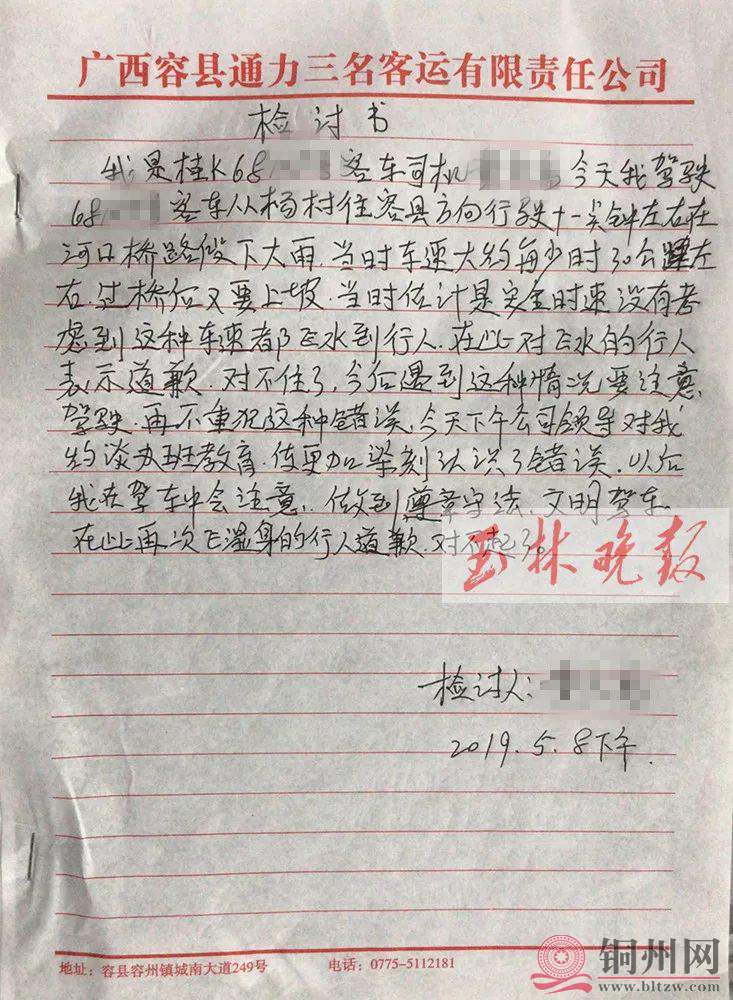 广西容县通力三名客运有限责任公司
检讨书
我是桂K68 客车司机 今天我驾驶
68 客车从杨村往容县方向行驶十一点钟左右在
河口桥路段下大雨.当时车速大约每少时30公里左
右.过桥后又要上坡.当时估计是安全时速没有考
虑到这种车速都飞水到行人.在此对飞水的行人
表示道歉.对不住了,今后遇到这种情况要注意
驾驶.再不重犯这种错误.今天下午公司领导对我
约谈办班教育.使更加深刻认识了错误.以后
我在驾车中会注意.做到遵章守法.文明驾车.
在此再次飞湿身的行人道歉.对不起了。
玉林晚报
检讨人:
2019.5.8下午.
地址:容县容州镇城南大道249号 电话:0775-5112181
铜州网
www.bltzw.com